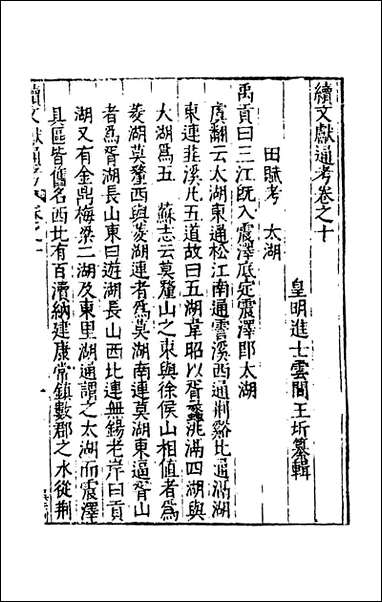 續文獻通考卷之十
皇明進士雲間王圻纂輯
田賦考　太湖
禹貢曰三江既入震澤底定震澤即太湖
虞翻云太湖東通松江南通霅溪西通荊谿北通滆湖
東連韭溪凡五道故曰五湖韋昭以胥蠡洮滆四湖與
大湖爲五　蘇志云莫釐山之東與徐侯山相值者爲
菱湖莫釐西與菱湖連者爲莫湖南連莫湖東逼胥山
者爲胥湖長山東曰遊湖長山西北連無錫老岸曰貢
湖又有金鼎梅梁二湖及東里湖通謂之太湖而震澤
具區皆舊名西北有百瀆納建康常鎮數郡之水從荊
續文獻通考